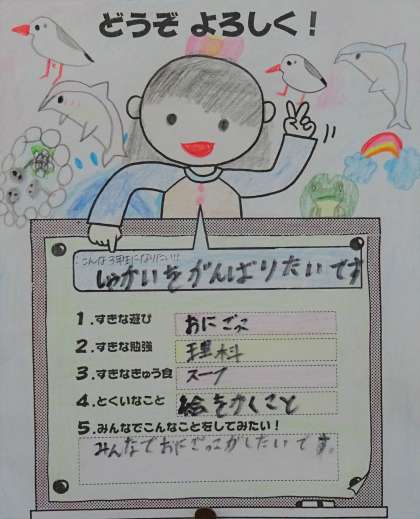 どうぞ よろしく！
こんな3年生になりたい!!!
しゃかいをがんばりたいです
1.すきな遊び おにごっこ
2.すきな勉強 理科
3.すきなきゅう食 スープ
4.とくいなこと 絵をかくこと
5.みんなでこんなことをしてみたい！
みんなでおにごっこがしたいです。